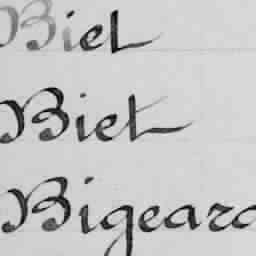 Biel
Biet
Bigeard